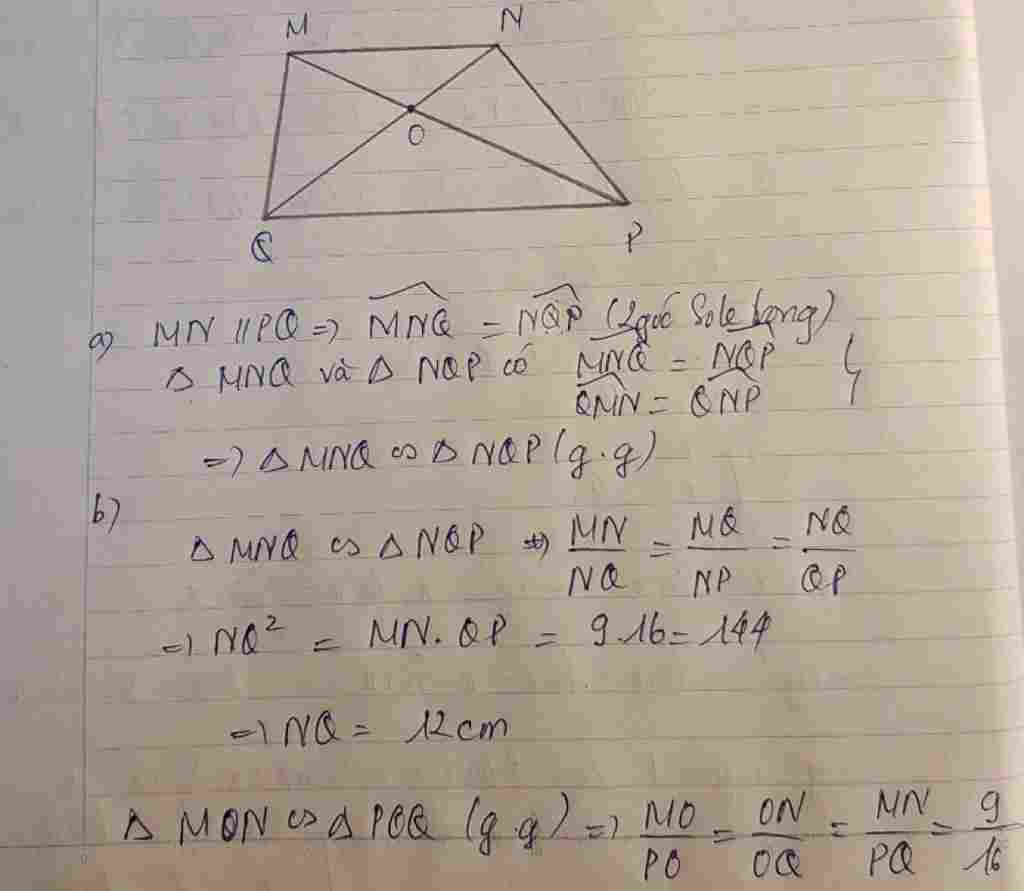 M N
O
Q P
a) MN // PQ => \widehat{MNQ} = \widehat{NQP} (2 góc sole trong)
Δ MNQ và Δ NQP có \widehat{MNQ} = \widehat{NQP}
\widehat{QMN} = \widehat{QNP}
=> Δ MNQ ∽ Δ NQP (g.g)
b)
Δ MNQ ∽ Δ NQP => MN/NQ = MQ/NP = NQ/QP
=> NQ² = MN. QP = 9.16 = 144
=> NQ = 12cm
Δ MON ∽ Δ POQ (g.g) => MO/PO = ON/OQ = MN/PQ = 9/16